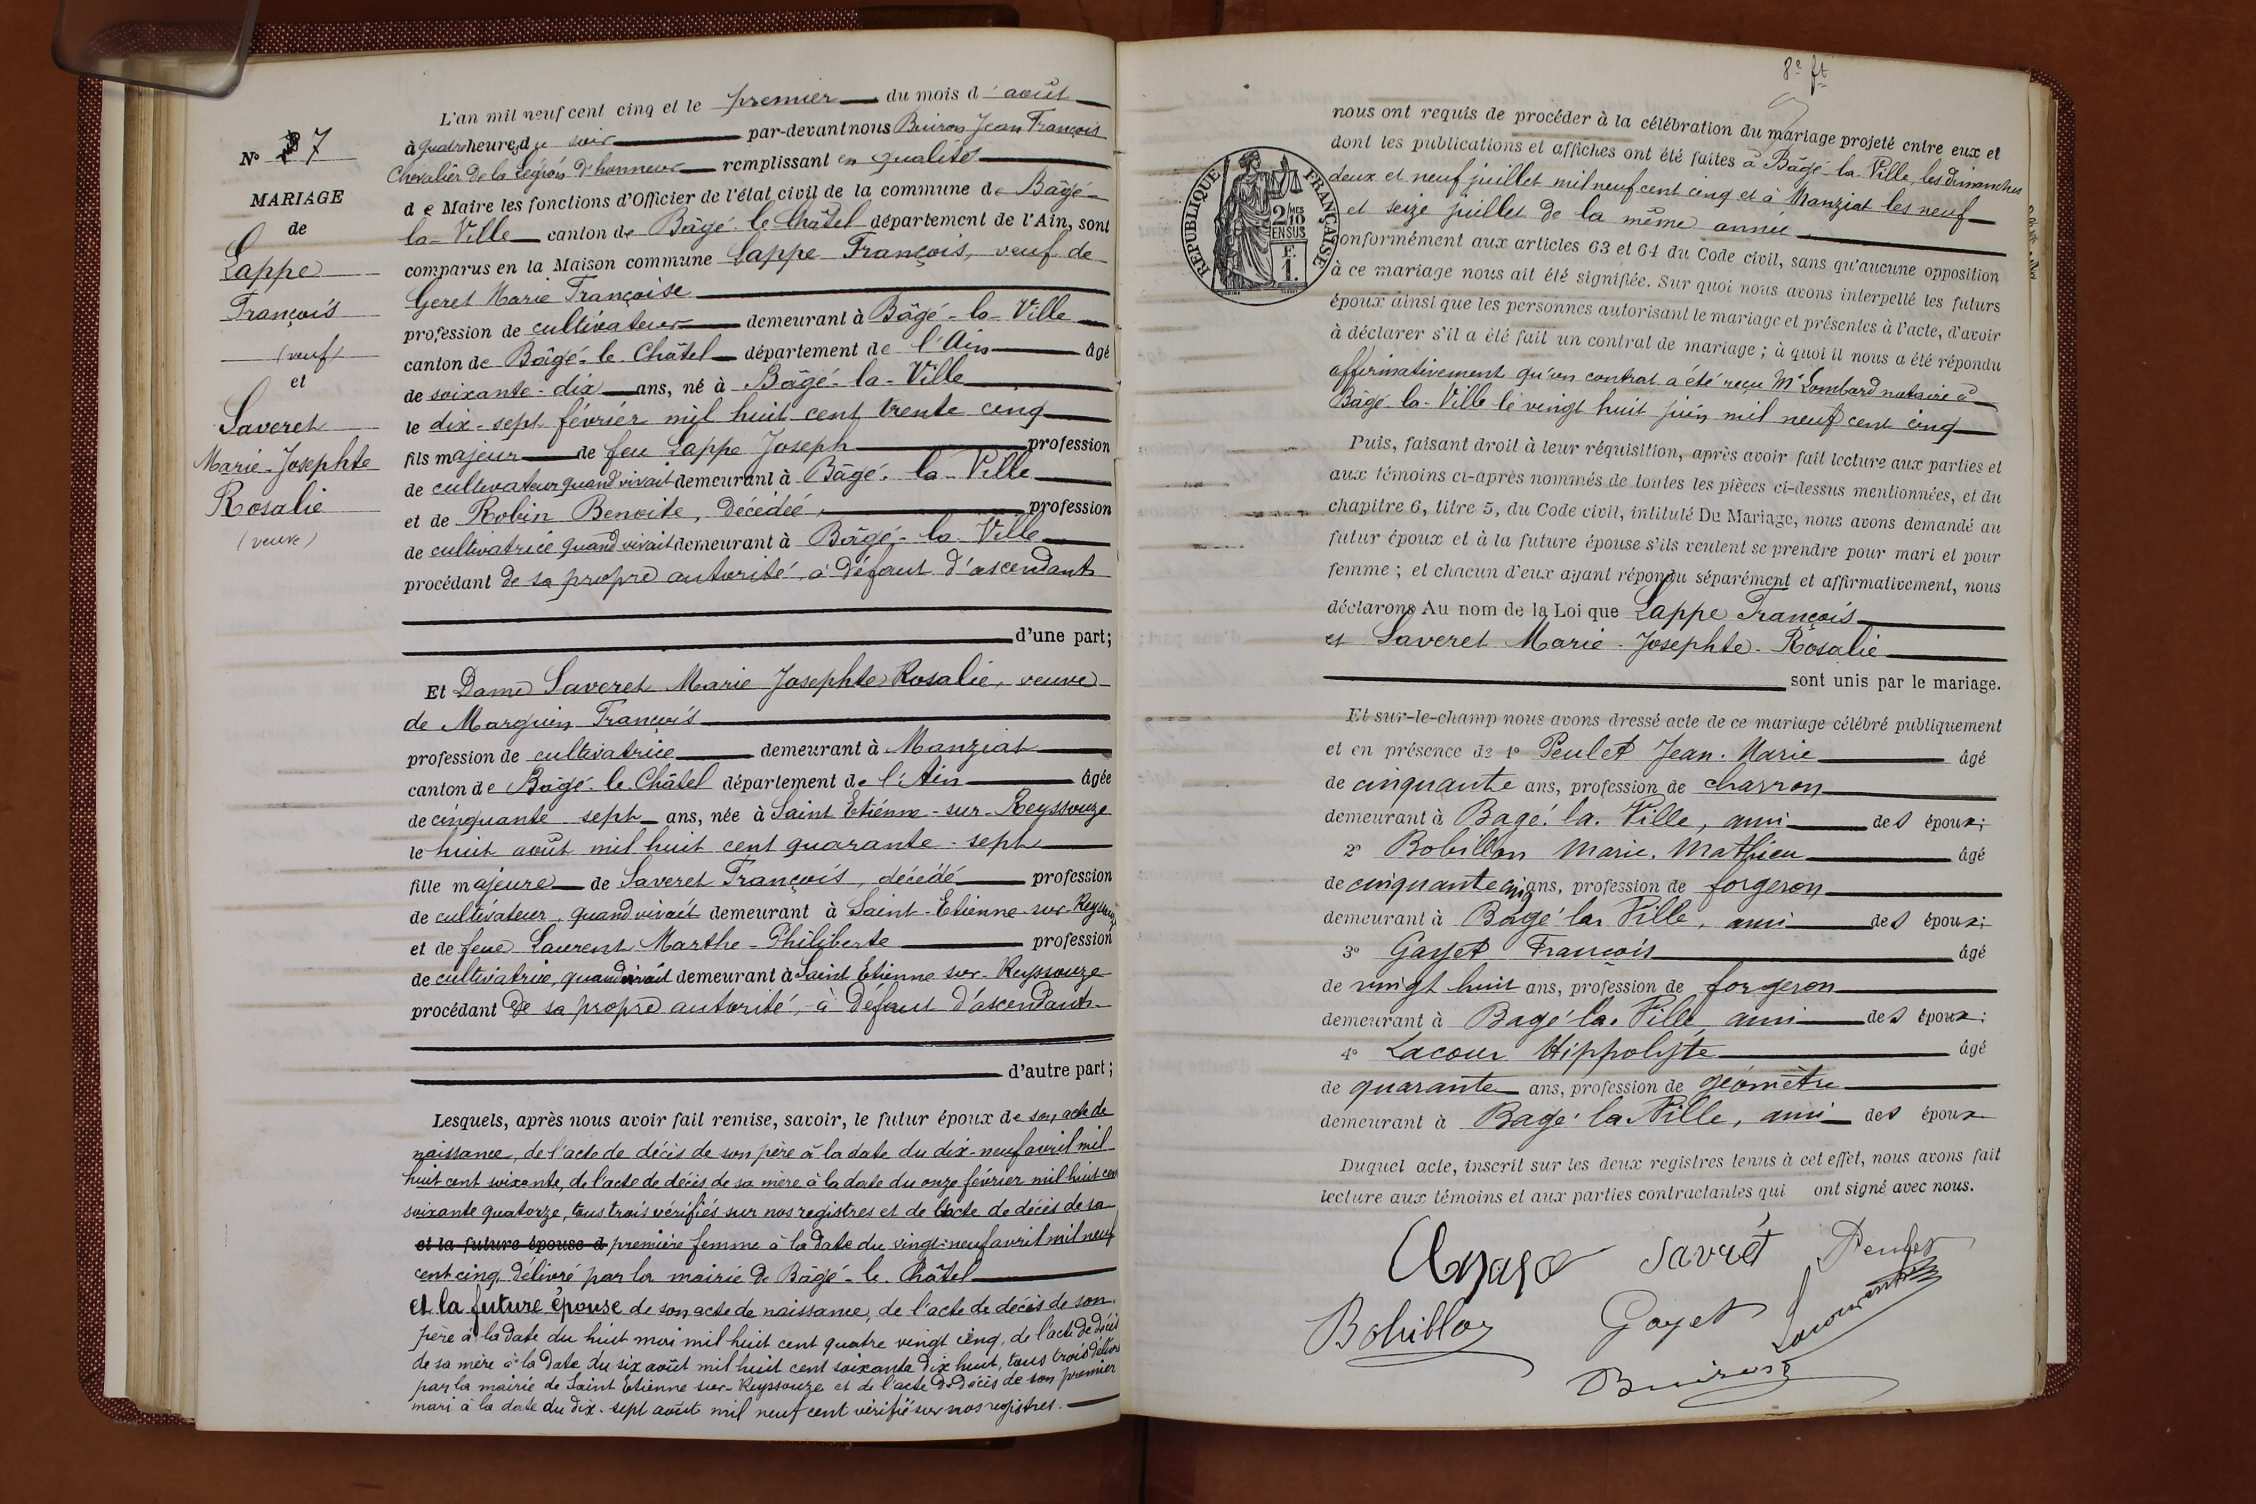 L'an mil neuf cent cinq et le premier du mois d'août
à quatre heures du soir par-devant nous Buiron Jean François
Chevalier de la Légion d'honneur remplissant en qualité
de Maire les fonctions d'Officier de l'état civil de la commune de Bâgé-
la-Ville canton de Bâgé-le-Châtel département de l'Ain, sont
comparus en la Maison commune Lappe François, veuf de
Geret Marie Françoise
profession de cultivateur demeurant à Bâgé-la-Ville
canton de Bâgé-le-Châtel département de l'Ain âgé
de soixante-dix ans, né à Bâgé-la-Ville
le dix-sept février mil huit cent trente cinq
fils majeur de feu Lappe Joseph profession
de cultivateur quand vivait demeurant à Bâgé-la-Ville
et de Robin Benoite, décédée profession
de cultivatrice quand vivait demeurant à Bâgé-la-Ville
procédant de sa propre autorité, à défaut d'ascendants
d'une part;
Et Dame Saveret Marie Josephte Rosalie, veuve
de Marguin François
profession de cultivatrice demeurant à Manziat
canton de Bâgé-le-Châtel département de l'Ain âgée
de cinquante sept ans, née à Saint Etienne-sur-Reyssouze
le huit août mil huit cent quarante-sept
fille majeure de Saveret François, décédé profession
de cultivateur, quand vivait demeurant à Saint-Etienne-sur-Reyssouze
et de feue Laurent Marthe-Philiberte profession
de cultivatrice, quand vivait demeurant à Saint Etienne sur-Reyssouze
procédant de sa propre autorité, à défaut d'ascendants
d'autre part;
Lesquels, après nous avoir fait remise, savoir, le futur époux de son acte de
naissance, de l'acte de décès de son père à la date du dix-neuf avril mil
huit cent soixante, de l'acte de décès de sa mère à la date du onze février mil huit cent
soixante quatorze, tous trois vérifiés sur nos registres et de l'acte de décès de sa
et la future épouse d première femme à la date du vingt-neuf avril mil neuf
cent cinq délivré par la mairie de Bâgé-le-Châtel
et la future épouse de son acte de naissance, de l'acte de décès de son
père à la date du huit mai mil huit cent quatre vingt cinq, de l'acte de décès
de sa mère à la date du six août mil huit cent soixante dix huit, tous trois délivrés
par la mairie de Saint Etienne sur-Reyssouze et de l'acte de décès de son premier
mari à la date du dix-sept août mil neuf cent vérifié sur nos registres.
N° 27
MARIAGE
de
Lappe
François
(veuf)
et
Saveret
Marie-Josephte
Rosalie
(veuve)
8e ft
nous ont requis de procéder à la célébration du mariage projeté entre eux et
dont les publications et affiches ont été faites à Bâgé-la-Ville, les dimanches
deux et neuf juillet mil neuf cent cinq et à Manziat les neuf
et seize juillet de la même année
conformément aux articles 63 et 64 du Code civil, sans qu'aucune opposition
à ce mariage nous ait été signifiée. Sur quoi nous avons interpellé les futurs
époux ainsi que les personnes autorisant le mariage et présentes à l'acte, d'avoir
à déclarer s'il a été fait un contrat de mariage; à quoi il nous a été répondu
affirmativement qu'un contrat a été reçu Me Lombard notaire à
Bâgé-la-Ville le vingt huit juin mil neuf cent cinq
Puis, faisant droit à leur réquisition, après avoir fait lecture aux parties et
aux témoins ci-après nommés de toutes les pièces ci-dessus mentionnées, et du
chapitre 6, titre 5, du Code civil, intitulé Du Mariage, nous avons demandé au
futur époux et à la future épouse s'ils veulent se prendre pour mari et pour
femme; et chacun d'eux ayant répondu séparément et affirmativement, nous
déclarons Au nom de la Loi que Lappe François
et Saveret Marie-Josephte-Rosalie
sont unis par le mariage.
Et sur-le-champ nous avons dressé acte de ce mariage célébré publiquement
et en présence de 1° Peulet Jean-Marie âgé
de cinquante ans, profession de charron
demeurant à Bagé-la-Ville, ami des époux;
2° Bobillon Marie-Mathieu âgé
de cinquante cinq ans, profession de forgeron
demeurant à Bagé la Ville, ami des époux;
3° Gayet François âgé
de vingt huit ans, profession de forgeron
demeurant à Bagé la Ville ami des époux;
4° Lacour Hippolyte âgé
de quarante ans, profession de géomètre
demeurant à Bagé la Ville, ami des époux
Duquel acte, inscrit sur les deux registres tenus à cet effet, nous avons fait
lecture aux témoins et aux parties contractantes qui ont signé avec nous.
Savret Peulet
Bobillon Gayet Lacour
Buiron
RÉPUBLIQUE FRANÇAISE
2/10MES
EN SUS
F.
1.